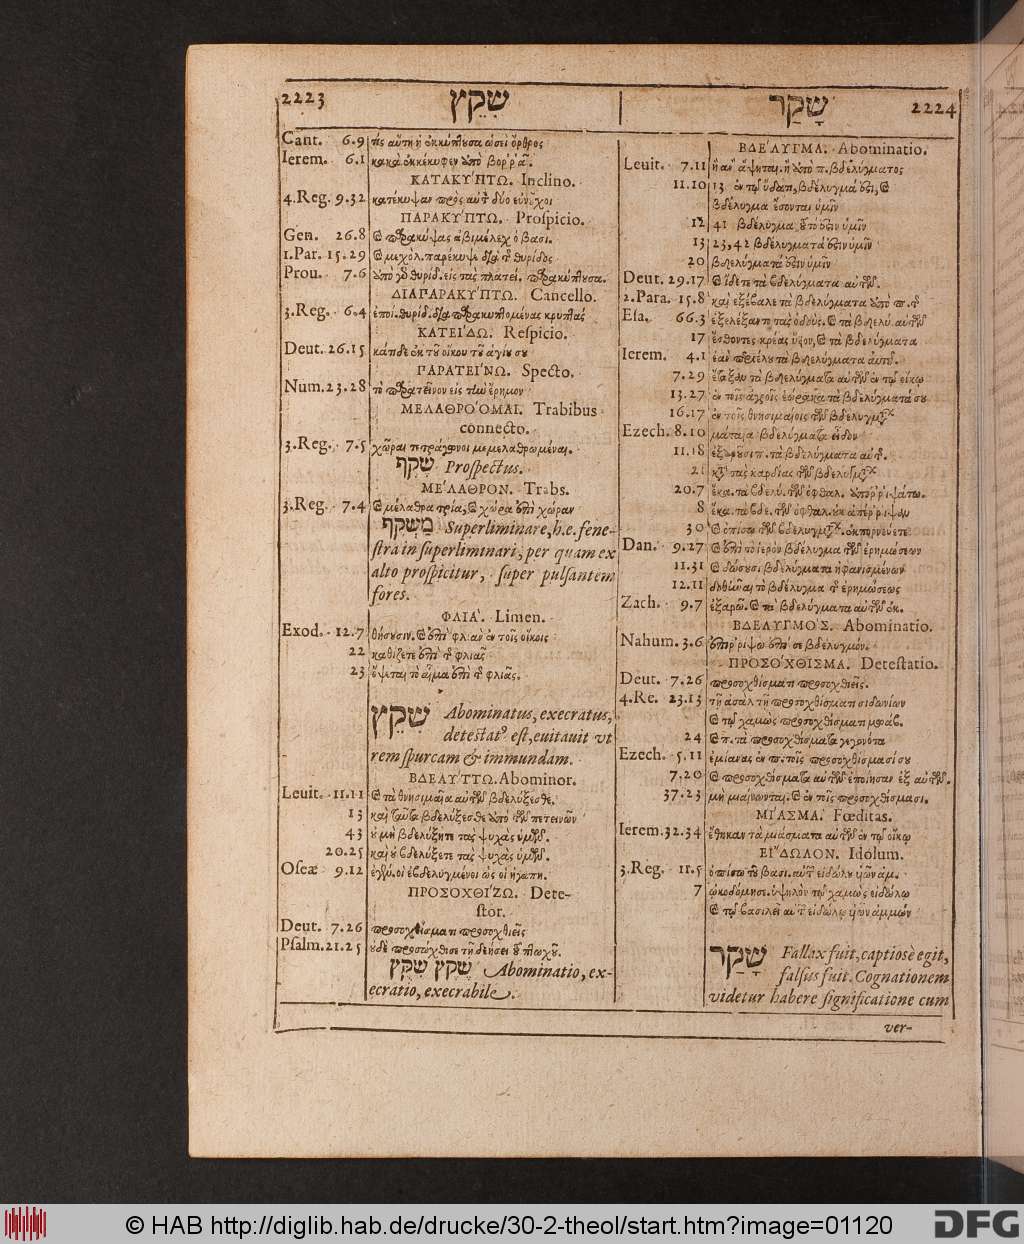 2223 שִׁקֵּץ
Cant. 6.9 τίς αὕτη ἡ ἐκκύπτουσα ὡσεὶ ὄρθρος
Ierem. 6.1 κακὰ ἐκκέκυφεν ἀπὸ βορρᾶ.
ΚΑΤΑΚΎΠΤΩ. Inclino.
4.Reg. 9.32 κατέκυψαν πρὸς αὐτ δύο εὐνοῦχοι
ΠΑΡΑΚΎΠΤΩ. Proſpicio.
Gen. 26.8 παρακύψας ἀβιμέλεχ ὁ βασι.
1.Par. 15.29 μεχὸλ παρέκυψε διὰ τῆς θυρίδος
Prou. 7.6 ἀπὸ γὸ θυρίδ. εἰς τὰς πλατεί. παρακύπτουσα.
ΔΙΑΠΑΡΑΚΎΠΤΩ. Cancello.
3.Reg. 6.4 ἐποί. θυρίδ. διαπαρακυπτομένας κρυπτὰς
ΚΑΤΕΊΔΩ. Reſpicio.
Deut. 26.15 κάτιδε ἐκ τοῦ οἴκου τοῦ ἁγίου σου
ΠΑΡΑΤΕΊΝΩ. Specto.
Num. 23.28 τὸ παρατεῖνον εἰς τὴν ἔρημον
ΜΕΛΑΘΡΌΟΜΑΙ. Trabibus
connecto.
3.Reg. 7.5 χῶραι τετράγωνοι μεμελαθρωμέναι.
שֶׁקֶף Proſpectus.
ΜΈΛΑΘΡΟΝ. Trabs.
3.Reg. 7.4 μέλαθρα τρία, χώρα ἐπὶ χώραν
מַשְׁקֹף Superliminare, h.e. fene-
ſtra in ſuperliminari, per quam ex
alto proſpicitur, ſuper pulſantem
fores.
ΦΛΙΆ. Limen.
Exod. 12.7 θήσουσιν. ἐπὶ φλιαῖ ἐν τοῖς οἴκοις
22 καθίξετε ἐπὶ τ φλιᾶς
23 ὄψεται τὸ αἷμα ἐπὶ τ φλιᾶς.
שִׁקֵּץ Abominatus, execratus,
detestat9 eſt, euitauit vt
rem ſpurcam & immundam.
ΒΔΕΛΎΤΤΩ. Abominor.
Leuit. 11.11 τὰ θνησιμαῖα αὐτῶν βδελύξεσθε.
13 καὶ ταῦτα βδελύξεσθε ἀπὸ τῶν πετεινῶν
43 οὐ μὴ βδελύξητε τὰς ψυχὰς ὑμῶν.
20.25 καὶ οὐ βδελύξετε τὰς ψυχὰς ὑμῶν.
Oſeæ 9.12 οἱ ἐβδελυγμένοι ὡς οἱ ἠγαπη.
ΠΡΟΣΟΧΘΊΖΩ. Dete-
ſtor.
Deut. 7.26 προσοχθίσματι προσοχθιεῖς
Pſalm. 21.25 οὐδὲ προσώχθισε τῇ δεήσει τοῦ πτωχοῦ.
שֶׁקֶץ שִׁקֻּץ Abominatio, ex-
ecratio, execrabile.
שָׁקַר 2224
ΒΔΈΛΥΓΜΑ. Abominatio.
Leuit. 7.11 ἢ ἂν ἅψηται. ἢ ἀπὸ π. βδελύγματος
11.10 13 ἐν τῷ ὕδατι, βδέλυγμά ἐστι,
βδέλυγμα ἔσονται ὑμῖν
12 41 βδέλυγμα τοῦτό ἐστιν ὑμῖν
13 23,42 βδελύγματά ἐστιν ὑμῖν
20 βδελύγματά ἐστιν ὑμῖν
Deut. 29.17 ἴδετε τὰ βδελύγματα αὐτῶν.
2.Para. 15.8 καὶ ἐξέβαλε τὰ βδελύγματα ἀπὸ π. τ
Eſa. 66.3 ἐξελέξαντο τὰς ὁδοὺς. τὰ βδελύ. αὐτῶν
17 ἔσθοντες κρέας ὕειον, τὰ βδελύγματα
Ierem. 4.1 ἐὰν περιέλῃ τὰ βδελύγματα αὐτοῦ.
7.29 ἔταξαν τὰ βδελύγματα αὐτῶν ἐν τῷ οἴκῳ
13.27 ἐν τοῖς ἀγροῖς ἑώρακα τὰ βδελύγματά σου
16.17 ἐν τοῖς θνησιμαίοις τῶν βδελυγμ
Ezech. 8.10 μάταια βδελύγματα εἶδον
11.18 ἐξαροῦσι π. τὰ βδελύγματα αὐτ.
21 τὰς καρδίας τῶν βδελυγμ
20.7 ἕκα. τὰ βδελύ. τῶν ὀφθαλ. ἀπορριψάτω.
8 ἕκα. τὰ βδε. τῶν ὀφθαλ. οὐκ ἀπέρριψαν
30 ὀπίσω τῶν βδελυγμ. ἐκπορνεύετε
Dan. 9.27 ἐπὶ τὸ ἱερὸν βδέλυγμα τῶν ἐρημώσεων
11.31 δώσουσι βδελύγματα ἠφανισμένων
12.11 δοθῆναι τὸ βδέλυγμα τ ἐρημώσεως
Zach. 9.7 ἐξαρῶ. τὰ βδελύγματα αὐτῶν ἐκ.
ΒΔΕΛΥΓΜΌΣ. Abominatio.
Nahum. 3.6 ἐπιρρίψω ἐπί σε βδελυγμόν.
ΠΡΟΣΌΧΘΙΣΜΑ. Deteſtatio.
Deut. 7.26 προσοχθίσματι προσοχθιεῖς.
4.Re. 23.13 τῇ ἀσὰλ τῇ προσοχθίσματι σιδωνίων
τῷ χαμὼς προσοχθίσματι μωάβ.
24 π. τὰ προσοχθίσματα γεγονότα
Ezech. 5.11 ἐμίανας ἐν π. τοῖς προσοχθίσμασί σου
7.20 προσοχθίσματα αὐτῶν ἐποίησαν ἐξ αὐτῶν.
37.23 μὴ μιαίνωνται. ἐν τοῖς προσοχθίσμασι.
ΜΊΑΣΜΑ. Fœditas.
Ierem. 32.34 ἔθηκαν τὰ μιάσματα αὐτῶν ἐν τῷ οἴκῳ
ΕΙ῎ΔΩΛΟΝ. Idolum.
3.Reg. 11.5 ὀπίσω τοῦ βασι. αὐτ εἰδώλου υἱῶν ἀμ.
7 ᾠκοδόμησε. ὑψηλὸν τῷ χαμὼς εἰδώλῳ
τῷ βασιλεῖ αὐτ εἰδώλῳ υἱῶν ἀμμών
שָׁקַר Fallax fuit, captiosè egit,
falſus fuit. Cognationem
videtur habere ſignificatione cum
ver-
© HAB http://diglib.hab.de/drucke/30-2-theol/start.htm?image=01120
DFG